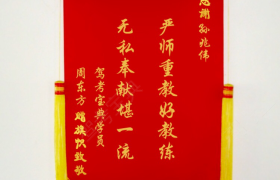 感谢孙兆伟
严师重教好教练
无私奉献堪一流
驾考宝典学员
周东方 赠旗帜致敬